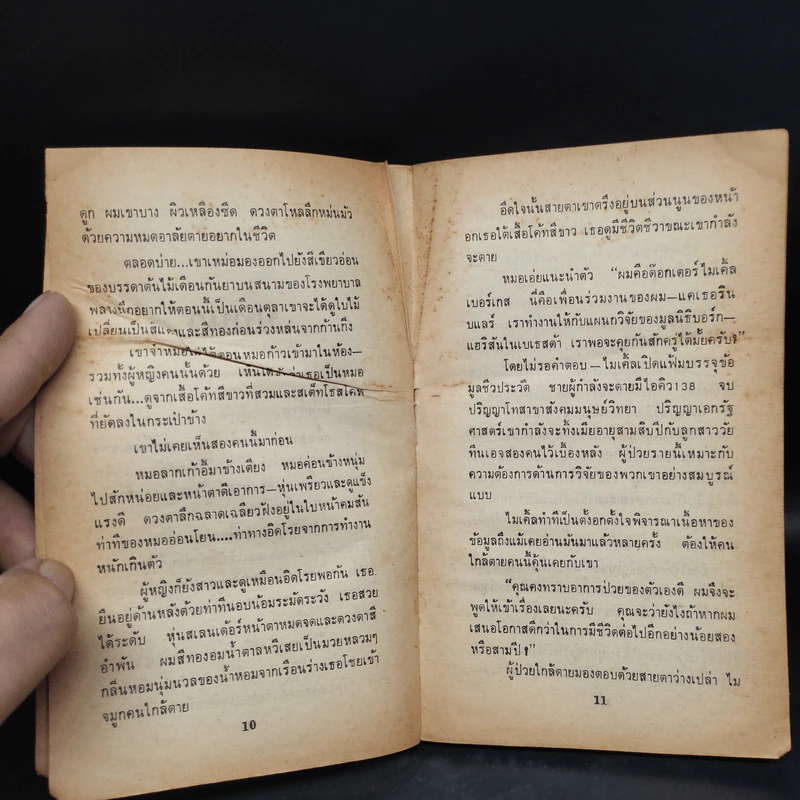 ดูก ผมเขาบาง ผิวเหลืองซีด ดวงตาโหลลึกหม่นมัว
ด้วยความหมดอาลัยตายอยากในชีวิต
ตลอดบ่าย...เขาเหม่อมองออกไปยังสีเขียวอ่อน
ของบรรดาต้นไม้เดือนกันยาบนสนามของโรงพยาบาล
พลางนึกอยากให้ตอนนี้เป็นเดือนตุลาเขาจะได้ดูใบไม้
เปลี่ยนเป็นสีแดงและสีทองก่อนร่วงหล่นจากก้านกิ่ง
เขาจำหมอไม่ได้ตอนหมอก้าวเข้ามาในห้อง—
รวมทั้งผู้หญิงคนนั้นด้วย เห็นได้ว่าเธอเป็นหมอ
เช่นกัน...ดูจากเสื้อโค้ทสีขาวที่สวมและสเต็ทโธสโคพ
ที่ยัดลงในกระเป๋าข้าง
เขาไม่เคยเห็นสองคนนี้มาก่อน
หมอลากเก้าอี้มาข้างเตียง หมอค่อนข้างหนุ่ม
ไปสักหน่อยและหน้าตาดีเอาการ—หุ่นเพรียวและดูแข็ง
แรงดี ดวงตาลึกฉลาดเฉลียวฝังอยู่ในใบหน้าคมสัน
ท่าทีของหมออ่อนโยน....ท่าทางอิดโรยจากการทำงาน
หนักเกินตัว
ผู้หญิงก็ยังสาวและดูเหมือนอิดโรยพอกัน เธอ
ยืนอยู่ด้านหลังด้วยท่าทีนอบน้อมระมัดระวัง เธอสวย
ได้ระดับ หุ่นสเลนเด้อร์หน้าตาหมดจดและดวงตาสี
อำพัน ผมสีทองอมน้ำตาลหวีเสยเป็นมวยหลวมๆ
กลิ่นหอมนุ่มนวลของน้ำหอมจากเรือนร่างเธอโชยเข้า
จมูกคนใกล้ตาย
10
อึดใจนั้นสายตาเขาตรึงอยู่บนส่วนนูนของหน้า
อกเธอใต้เสื้อโค้ทสีขาว เธอดูมีชีวิตชีวาขณะเขากำลัง
จะตาย
หมอเอ่ยแนะนำตัว "ผมคือด๊อกเตอร์ไมเคิ้ล
เบอร์เกส นี่คือเพื่อนร่วมงานของผม—แคเธอริน
แบลร์ เราทำงานให้กับแผนกวิจัยของมูลนิธิบอร์ก—
แฮริสันในเบเธสด้า เราพอจะคุยกันสักครู่ได้มั้ยครับ?"
โดยไม่รอคำตอบ—ไมเคิ้ลเปิดแฟ้มบรรจุข้อ
มูลชีวประวัติ ชายผู้กำลังจะตายมีไอคิว138 จบ
ปริญญาโทสาขาสังคมมนุษย์วิทยา ปริญญาเอกรัฐ
ศาสตร์เขากำลังจะทิ้งเมียอายุสามสิบปีกับลูกสาววัย
ทีนเอจสองคนไว้เบื้องหลัง ผู้ป่วยรายนี้เหมาะกับ
ความต้องการด้านการวิจัยของพวกเขาอย่างสมบูรณ์
แบบ
ไมเคิ้ลทำทีเป็นตั้งอกตั้งใจพิจารณาเนื้อหาของ
ข้อมูลถึงแม้เคยอ่านมันมาแล้วหลายครั้ง ต้องให้คน
ใกล้ตายคนนี้คุ้นเคยกับเขา
"คุณคงทราบอาการป่วยของตัวเองดี ผมจึงจะ
พูดให้เข้าเรื่องเลยนะครับ คุณจะว่ายังไงถ้าหากผม
เสนอโอกาสดีกว่าในการมีชีวิตต่อไปอีกอย่างน้อยสอง
หรือสามปี?"
ผู้ป่วยใกล้ตายมองตอบด้วยสายตาว่างเปล่า ไม
11